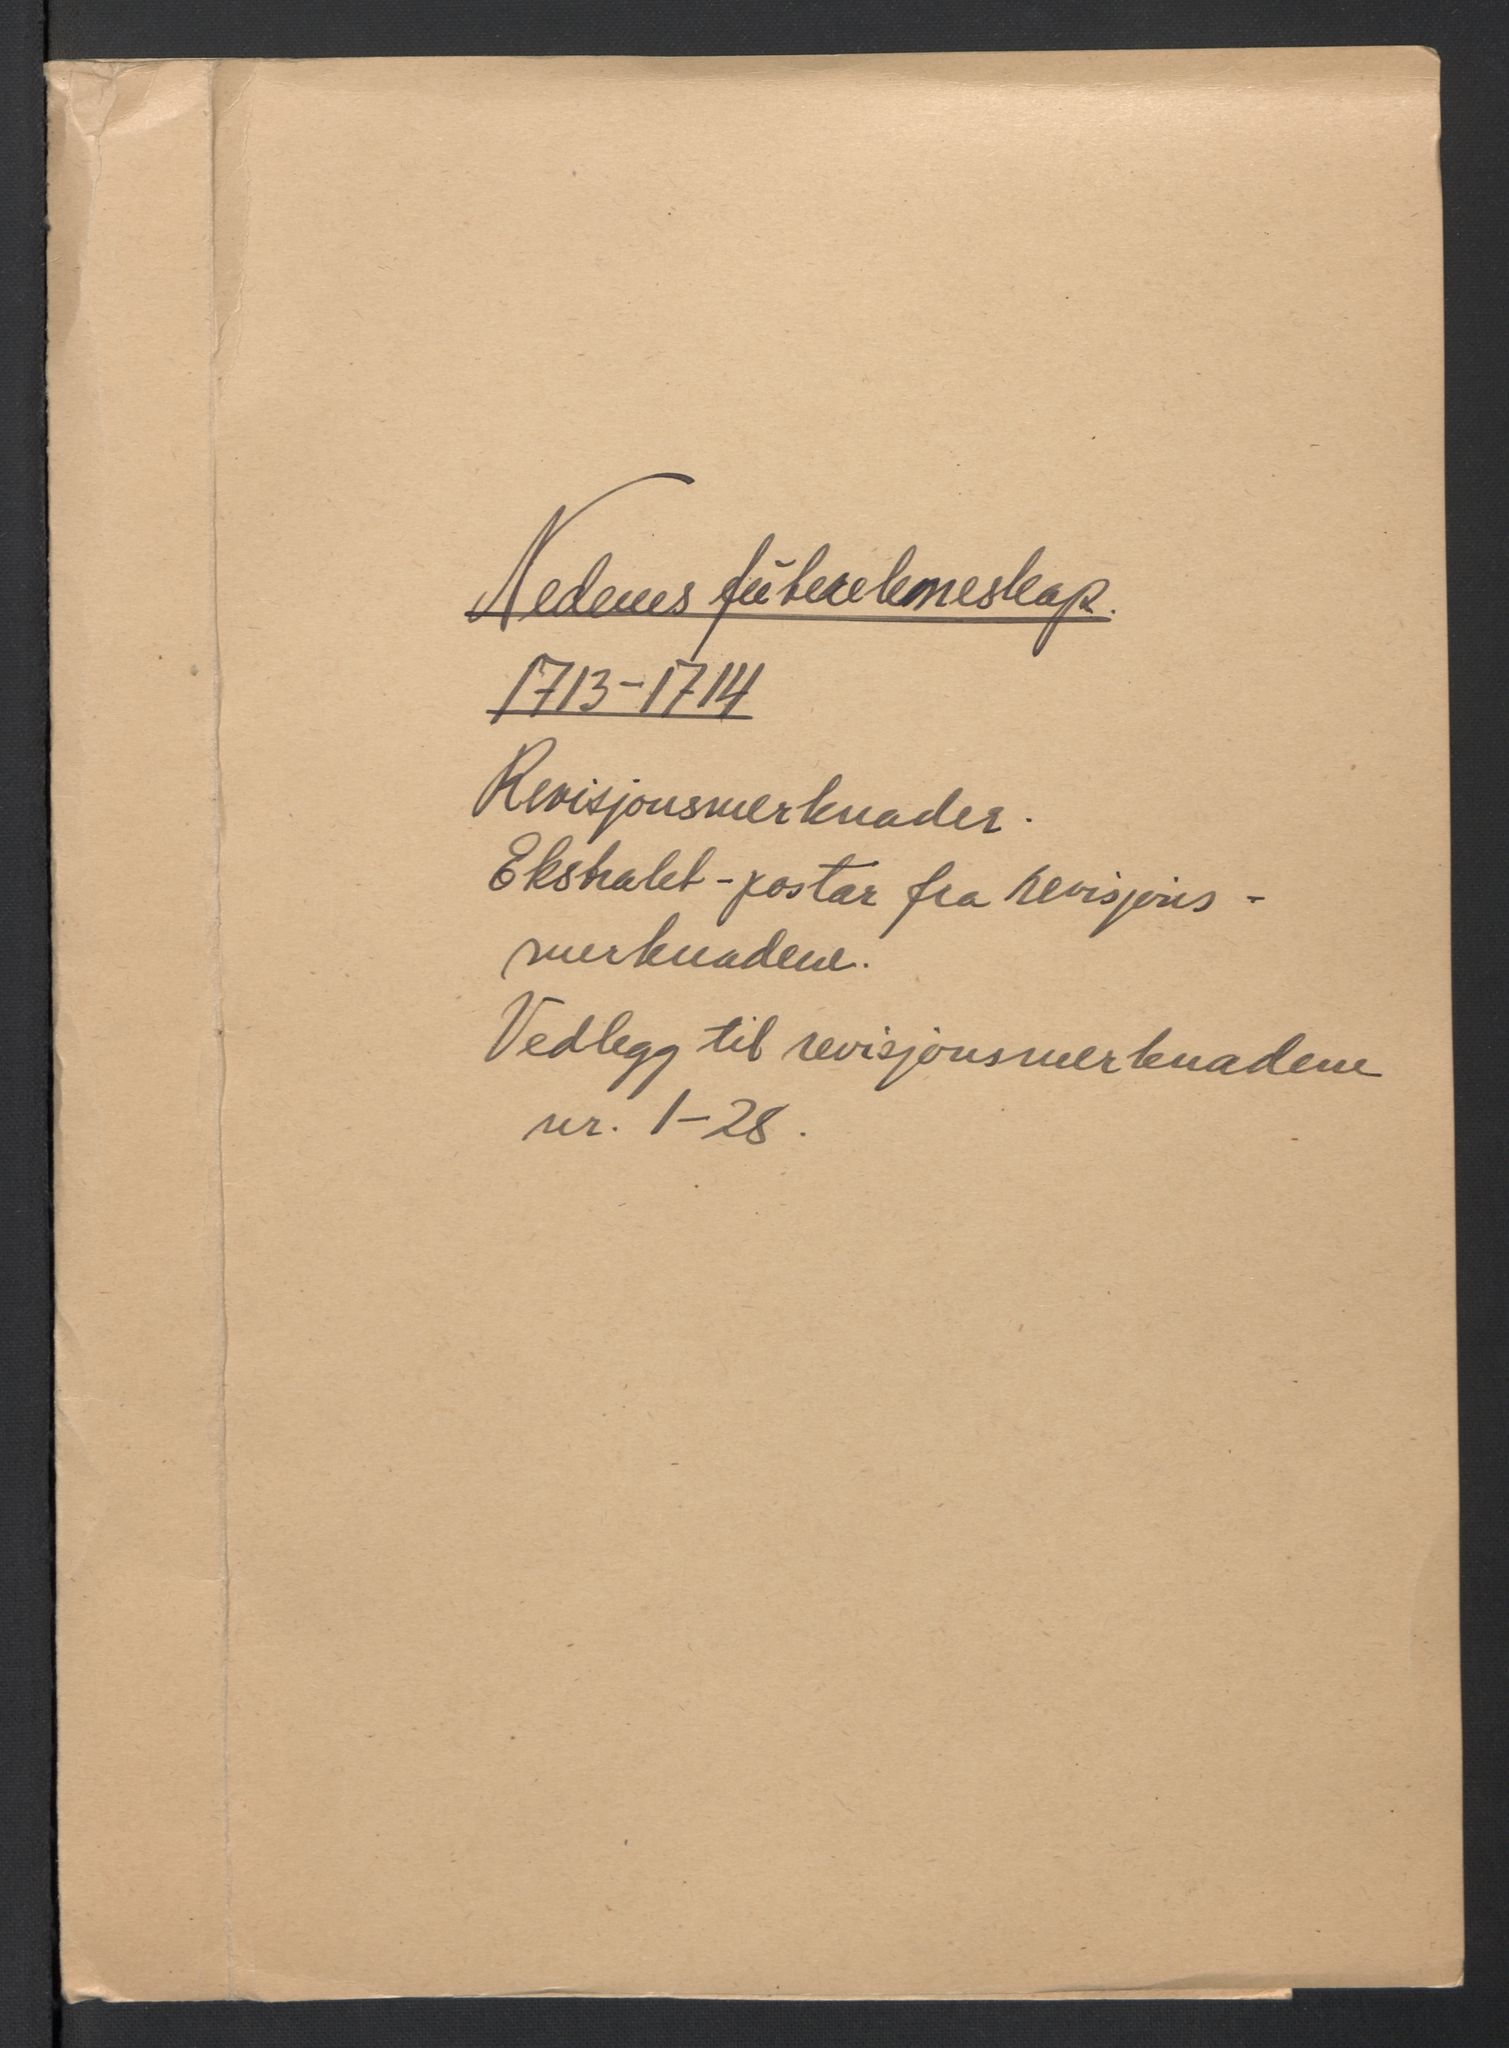 Nedenes futerekneskap.
1713-1714
Revisjonsmerknader.
Ekstrakt-postar fra revisjons-
merknadene.
Vedlegg til revisjonsmerknadene
nr. 1-28.